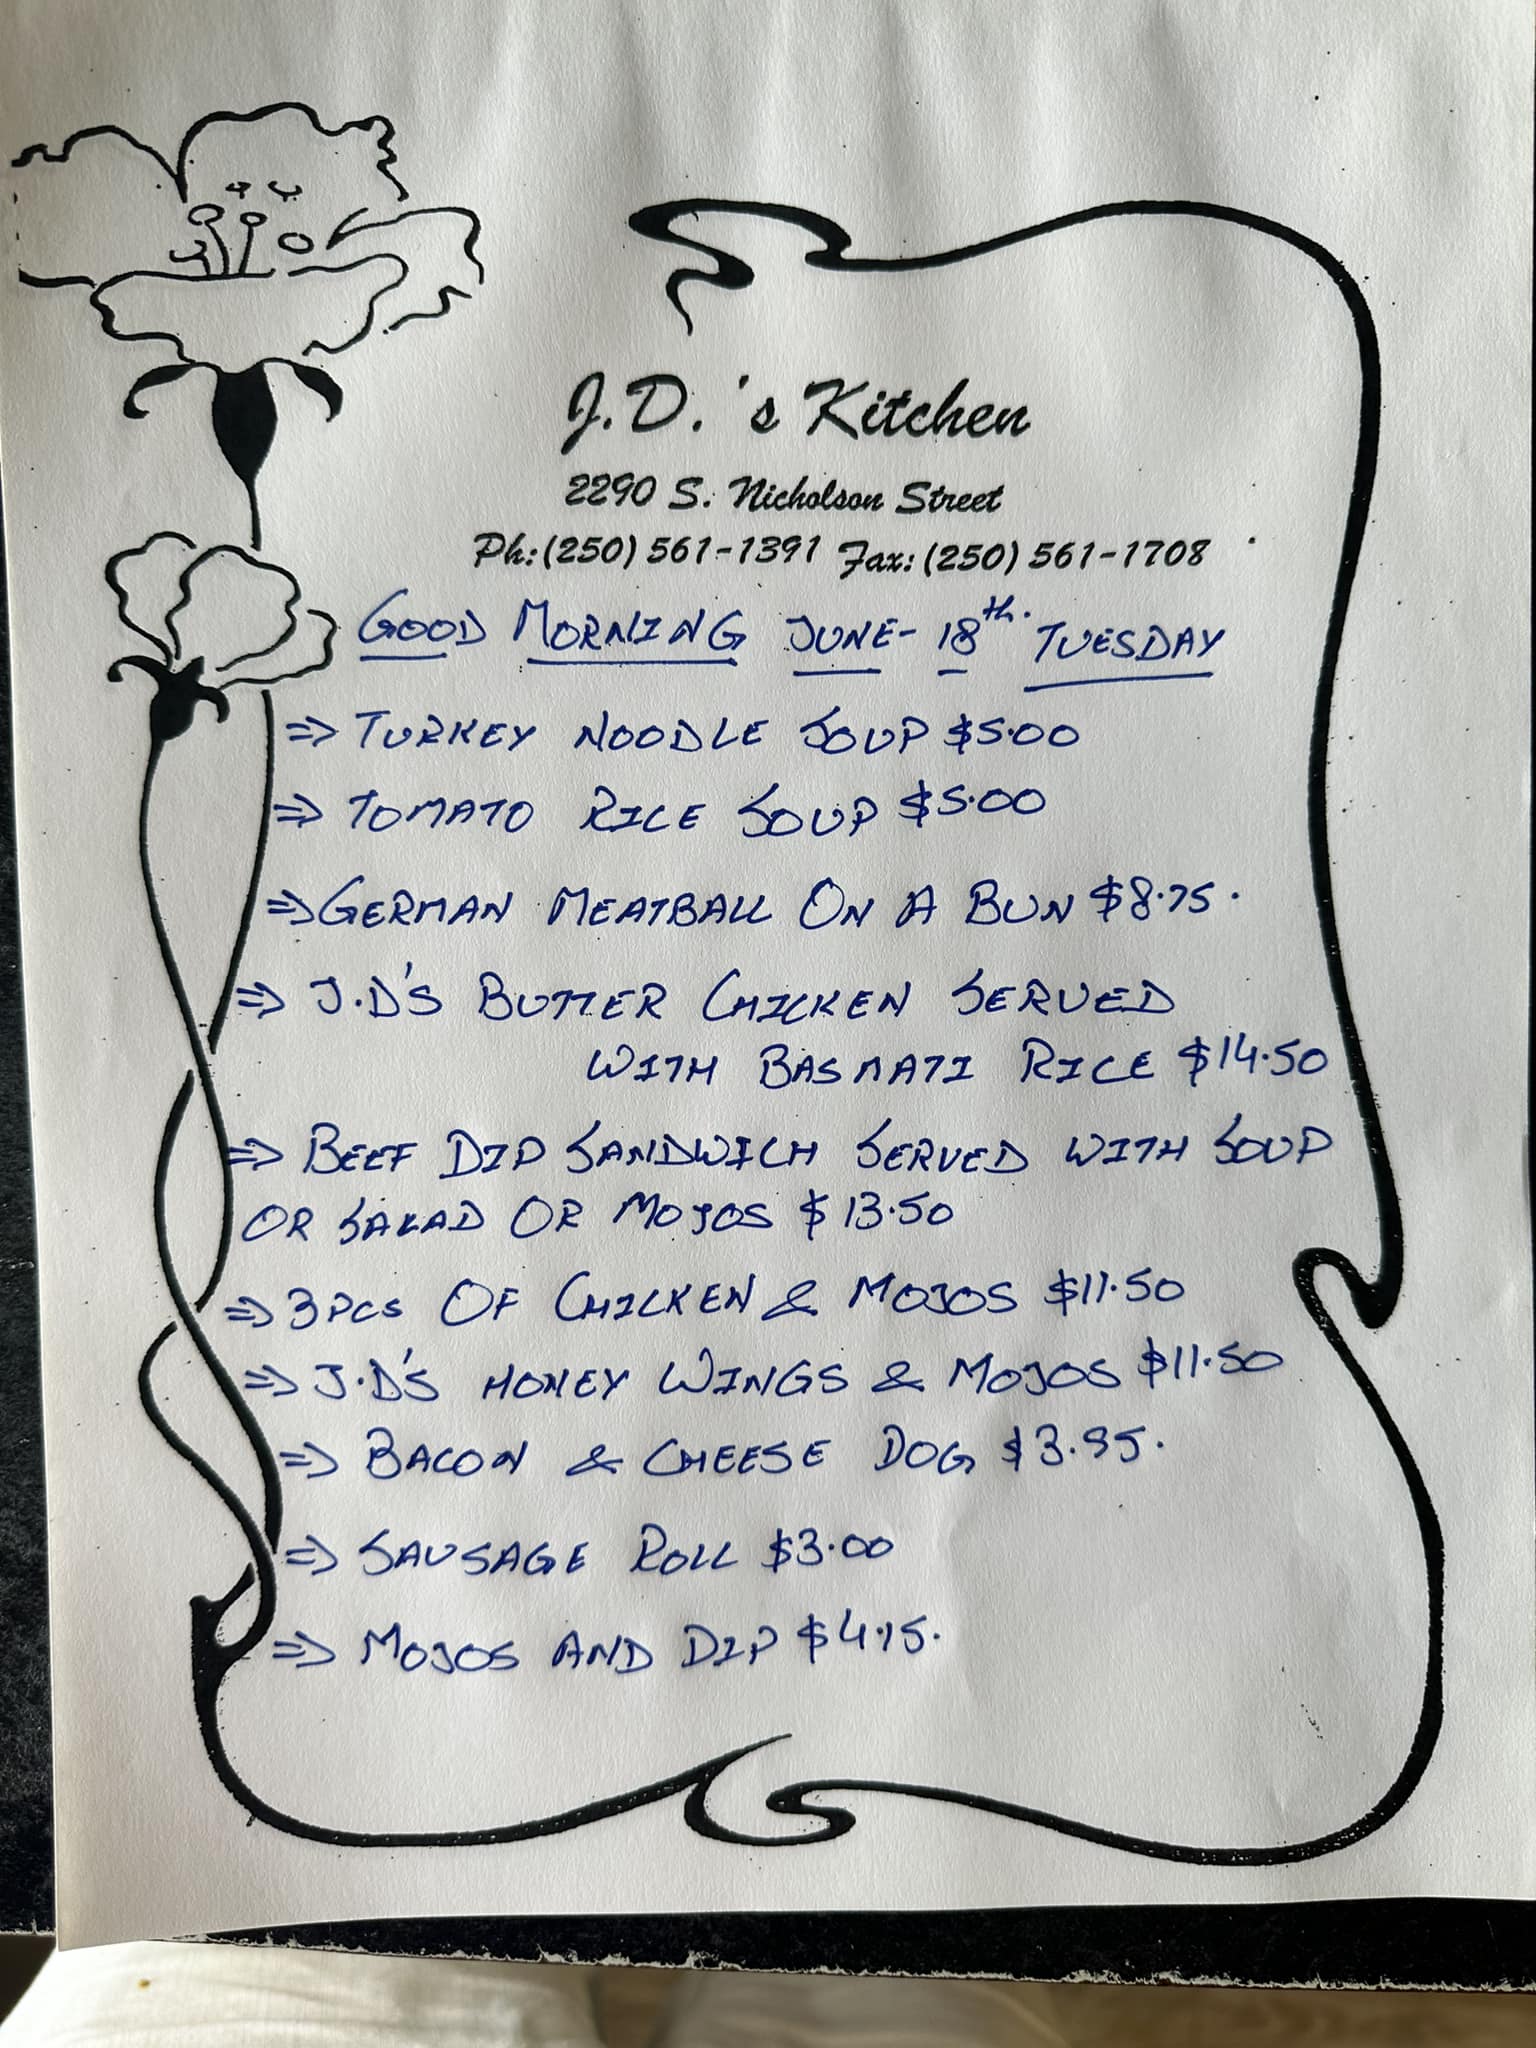 J.D.'s Kitchen
2290 S. Nicholson Street
Ph:(250) 561-1391 Fax:(250) 561-1708
GOOD MORNING JUNE- 18th. TUESDAY
⇒ TURKEY NOODLE SOUP $5.00
⇒ TOMATO RICE SOUP $5.00
⇒ GERMAN MEATBALL ON A BUN $8.75.
⇒ J.D'S BUTTER CHICKEN SERVED
WITH BASMATI RICE $14.50
⇒ BEEF DIP SANDWICH SERVED WITH SOUP
OR SALAD OR MOJOS $13.50
⇒ 3PCS OF CHICKEN & MOJOS $11.50
⇒ J.D'S HONEY WINGS & MOJOS $11.50
⇒ BACON & CHEESE DOG $3.95.
⇒ SAUSAGE ROLL $3.00
⇒ MOJOS AND DIP